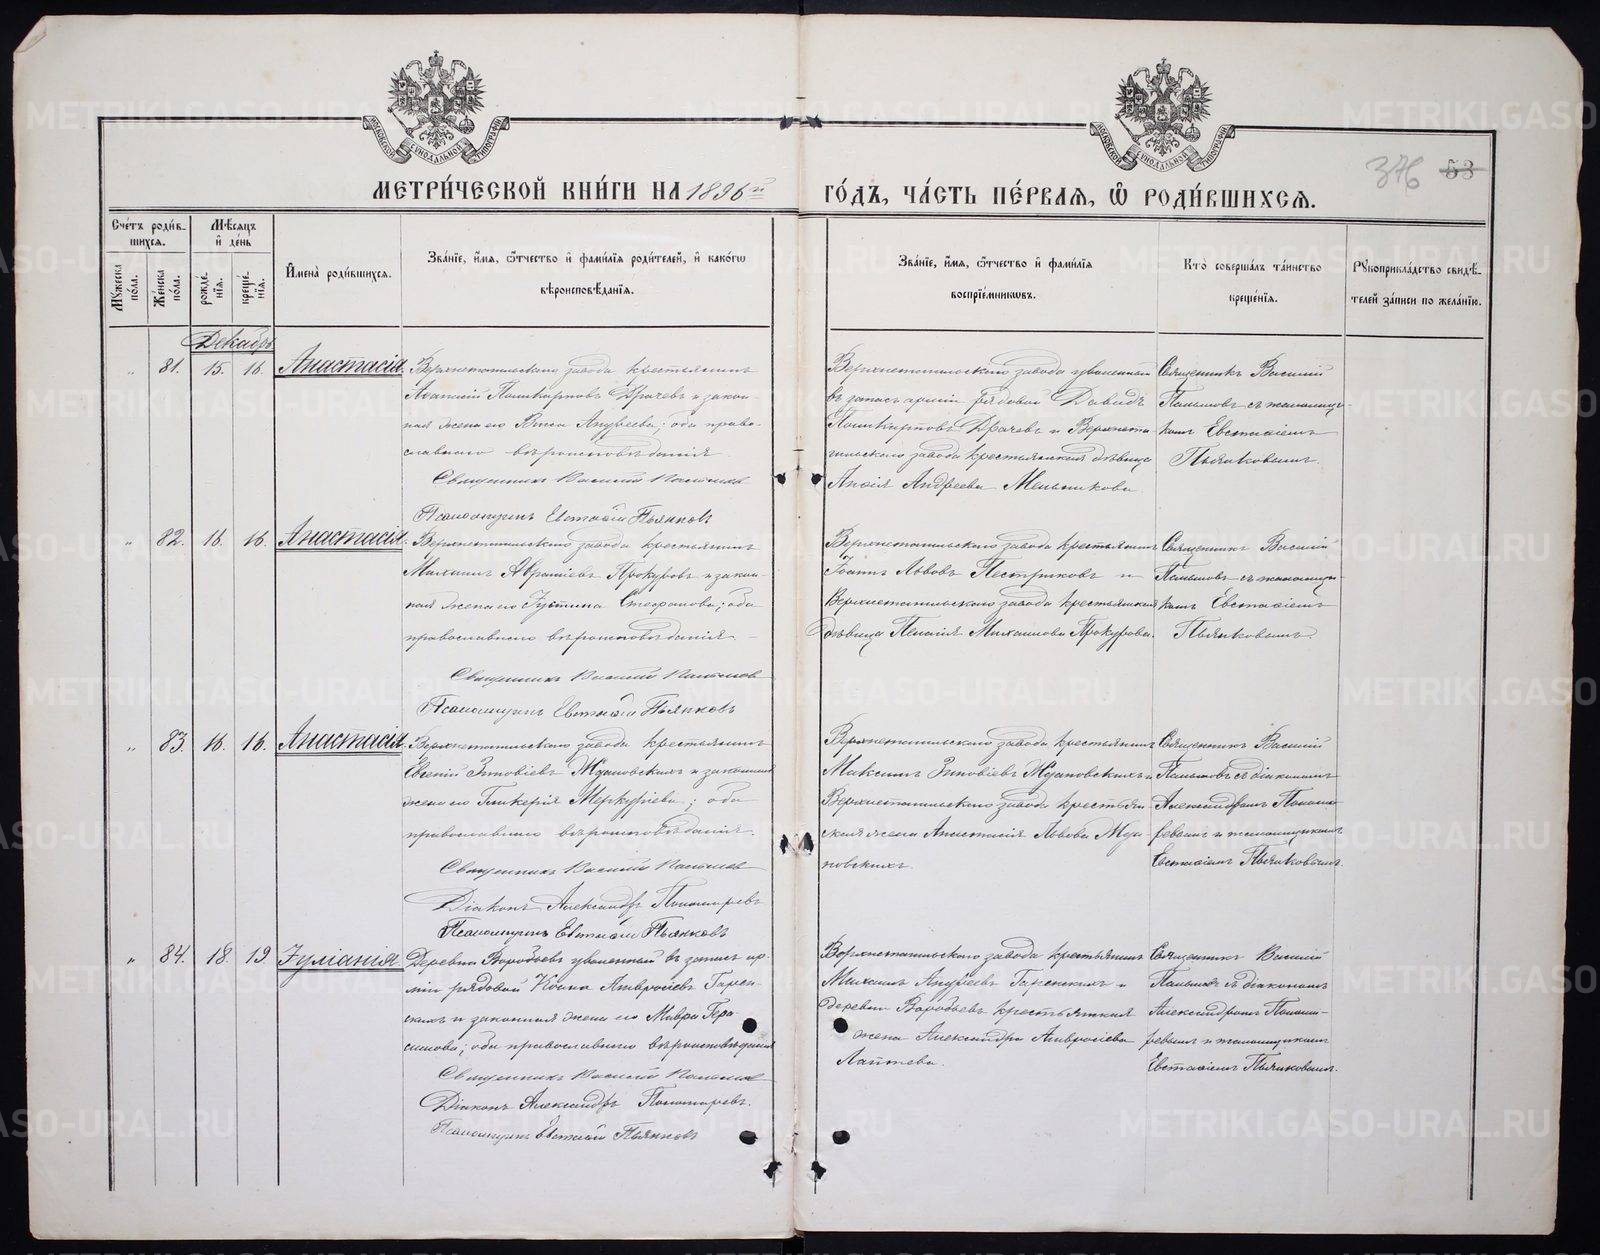 МОСКОВСКОЙ СУНОДАЛЬНОЙ ТИПОГРАФІИ
МОСКОВСКОЙ СУНОДАЛЬНОЙ ТИПОГРАФІИ
376 53
МЕТРИ́ЧЕСКОЙ КНИ́ГИ НА 1896й ГО́ДЪ, ЧА́СТЬ ПЕ́РВАЯ, Ѡ҆ РОДИ́ВШИХСЯ.
Сче́тъ роди́в-
шихся.
Мѣ́сяцъ
и҆ де́нь
Мꙋ́жеска по́ла.
Же́нска по́ла.
рожде́-нїя.
креще́-нїя.
И҆мена̀ роди́вшихся.
Зва́нїе, и҆́мя, ѻ҆́тчество и҆ фами́лїя роди́телей, и҆ како́гѡ
вѣроисповѣ́данїя.
Зва́нїе, и҆́мя, ѻ҆́тчество и҆ фами́лїя
воспрїе́мникѡвъ.
Кто̀ соверша́лъ та́инство
креще́нїя.
Рꙋкоприкла́дство свидѣ́-
телей за́писи по жела́нїю.
Декабрь
„ 81. 15. 16. Анастасія
Верхнетагильскаго завода крестьянинъ
Поликарповъ Драчевъ и закон-
ная жена его Васса Андреева; оба право-
славнаго вѣроисповѣданія
Священникъ Василій
Псаломщикъ Евстафій Пьянковъ
Верхнетагильскаго завода уволенный
въ запасъ арміи рядовой Давидъ
Поликарповъ Драчевъ и Верхнета-
гильскаго завода крестьянская дѣвица
Андреева Меньшикова
Священникъ Василій
съ псаломщи-
комъ Евстафіемъ
Пьянковымъ.
„ 82. 16. 16. Анастасія.
Верхнетагильскаго завода крестьянинъ
Михаилъ Прокуровъ и закон-
ная жена его Іустина Стефанова; оба
православнаго вѣроисповѣданія
Священникъ Василій
Псаломщикъ Евстафій Пьянковъ
Верхнетагильскаго завода крестьянинъ
Іоаннъ Львовъ Пестриковъ и
Верхнетагильскаго завода крестьянская
дѣвица Пелагія Михаилова Прокурова.
Священникъ Василій
съ псаломщи-
комъ Евстафіемъ
Пьянковымъ.
„ 83. 16. 16. Анастасія
Верхнетагильскаго завода крестьянинъ
Евгеній Зиновіевъ Ждановскихъ и законная
жена его Гликерія Меркуріева; оба
православнаго вѣроисповѣданія.
Священникъ Василій
Діаконъ Александръ Пономаревъ
Псаломщикъ Евстафій Пьянковъ
Верхнетагильскаго завода крестьянинъ
Максимъ Зиновіевъ Ждановскихъ и
Верхнетагильскаго завода крестьян-
ская жена Анастасія Львова Жда-
новскихъ.
Священникъ Василій
съ діакономъ
Александромъ Понома-
ревымъ и псаломщикомъ
Евстафіемъ Пьянковымъ.
„ 84. 18. 19 Іуліанія.
Деревни Воробьевъ уволенный въ запасъ ар-
міи рядовой Амвросіевъ
и законная жена его Мавра Гера-
симова; оба православнаго вѣроисповѣданія
Священникъ Василій
Діаконъ Александръ Пономаревъ.
Псаломщикъ Евстафій Пьянковъ
Верхнетагильскаго завода крестьянинъ
Михаилъ Андреевъ и
деревни Воробьевъ крестьянская
жена Александра Амвросіева
Лаптева.
Священникъ Василій
съ діакономъ
Александромъ Понома-
ревымъ и псаломщикомъ
Евстафіемъ Пьянковымъ.
METRIKI.GASO-URAL.RU